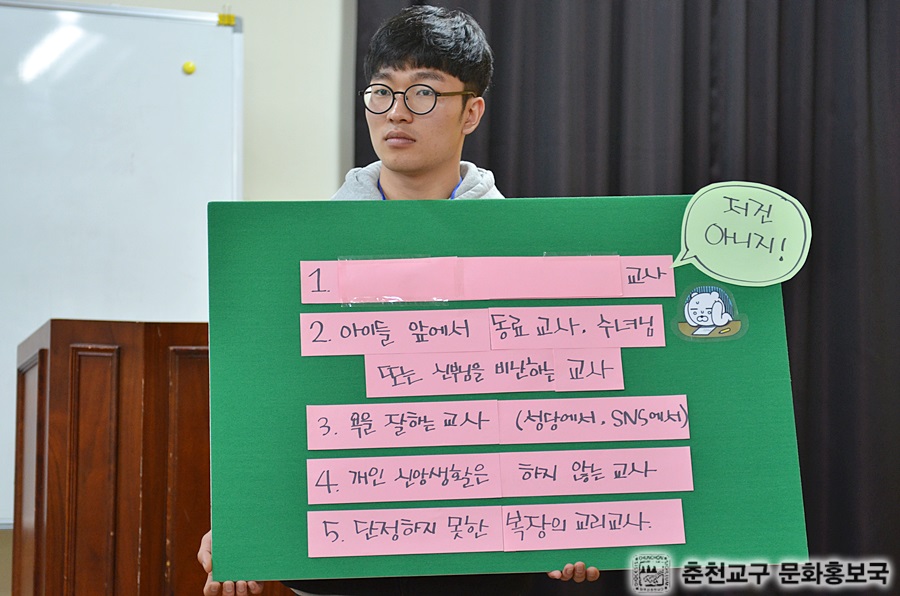 저건
아니지!
1. 교사
2. 아이들 앞에서 동료 교사, 수녀님
또는 신부님을 비난하는 교사
3. 욕을 잘하는 교사 (성당에서, SNS에서)
4. 개인 신앙생활은 하지 않는 교사
5. 단정하지 못한 복장의 교리교사.
춘천교구 문화홍보국